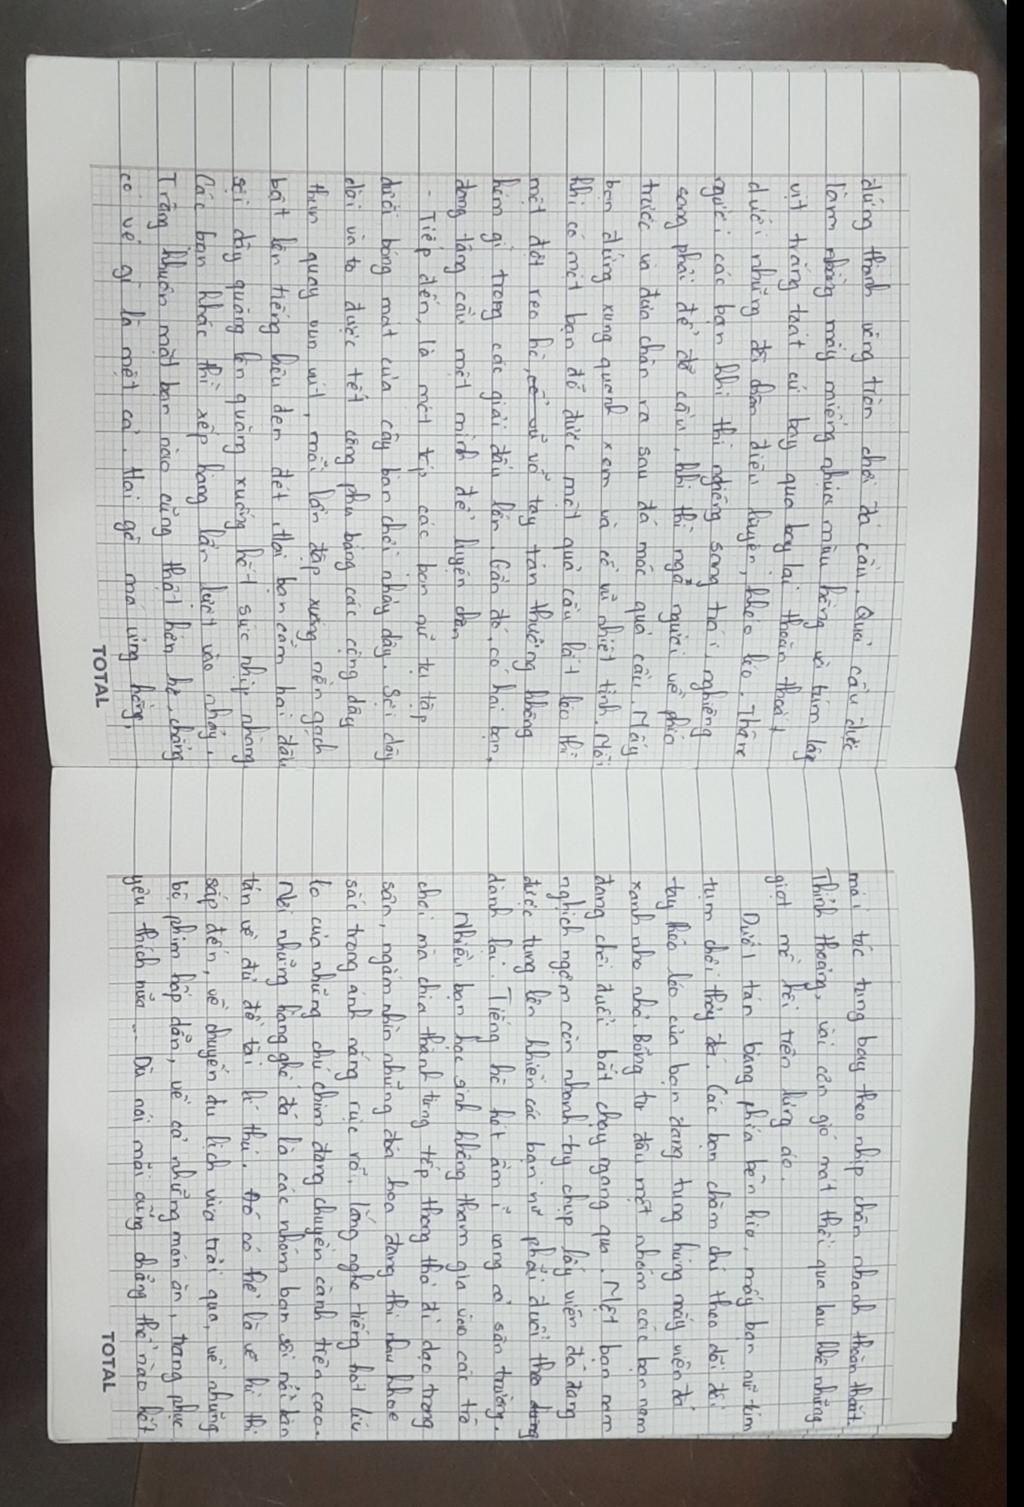 đứng thành vòng tròn chơi đá cầu. Quả cầu được
làm bằng mấy miếng nhựa màu hồng và túm lông
vịt trắng toát cứ bay qua bay lại thoăn thoắt
dưới những đôi chân điêu luyện, khéo léo. Thân
người các bạn khi thì nghiêng sang trái, nghiêng
sang phải để đỡ cầu, khi thì ngả người về phía
trước và đưa chân ra sau để móc quả cầu. Mấy
bạn đứng xung quanh xem và cổ vũ nhiệt tình. Mỗi
khi có một bạn đỡ được một quả cầu lắt léo thì
một đợt reo hò, cổ vũ vỗ tay tán thưởng không
kém gì trong các giải đấu lớn. Gần đó, có hai bạn,
đang tâng cầu một mình để luyện chân
- Tiếp đến, là một tốp các bạn nữ tụ tập
dưới bóng mát của cây bàn chơi nhảy dây. Sợi dây
dài và to được tết công phu bằng các cọng dây
thun quay vun vút, mỗi lần đập xuống nền gạch
bật lên tiếng kêu đen đét. Hai bạn cầm hai đầu
sợi dây quăng lên quăng xuống hết sức nhịp nhàng.
Các bạn khác thì xếp hàng lần lượt vào nhảy.
Trông khuôn mặt bạn nào cũng thật hân hoan, chẳng
có vẻ gì là mệt cả. Hai gò má ửng hồng,
TOTAL
mái tóc tung bay theo nhịp chân nhanh thoăn thoắt.
Thỉnh thoảng, vài cơn gió mát thổi qua lau khô những
giọt mồ hôi trên lưng áo.
Dưới tán bàng phía bên kia, mấy bạn nữ túm
tụm chơi thảy đá. Các bạn chăm chú theo dõi đôi
tay khéo léo của bạn đang tung hứng mấy viên đá
xanh nho nhỏ. Bỗng từ đâu một nhóm các bạn nam
đang chơi đuổi bắt chạy ngang qua. Một bạn nam
nghịch ngợm còn nhanh tay chụp lấy viên đá đang
được tung lên khiến các bạn nữ phải đuổi theo
dành lại. Tiếng hò hét ầm ĩ vang cả sân trường.
Nhiều bạn học sinh không tham gia vào các trò
chơi mà chia thành từng tốp thong thả đi dạo trong
sân, ngắm nhìn những đóa hoa đang thi nhau khoe
sắc trong ánh nắng rực rỡ, lắng nghe tiếng hót líu
lo của những chú chim đang chuyền cành trên cao.
Nơi những hàng ghế đá là các nhóm bạn sôi nổi bàn
tán về đủ đề tài lí thú. Đó có thể là về kì thi
sắp đến, về chuyến du lịch vừa trải qua, về những
bộ phim hấp dẫn, về cả những món ăn, trang phục
yêu thích nữa... Dù nói mãi cũng chẳng thể nào hết
TOTAL